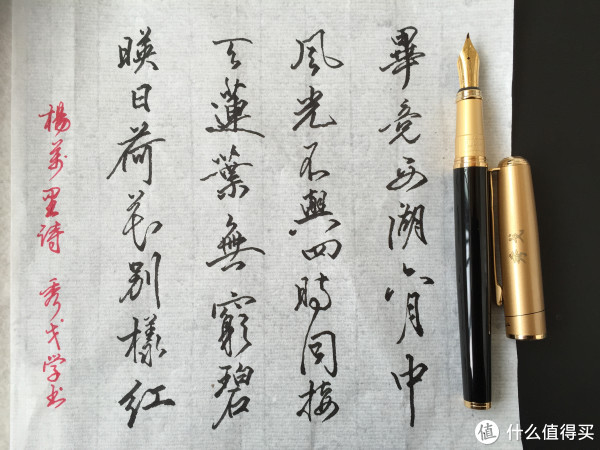 畢竟西湖六月中
風光不與四時同接
天蓮葉無窮碧
暎日荷花别樣红
楊萬里詩 秀戈学书
值 什么值得买